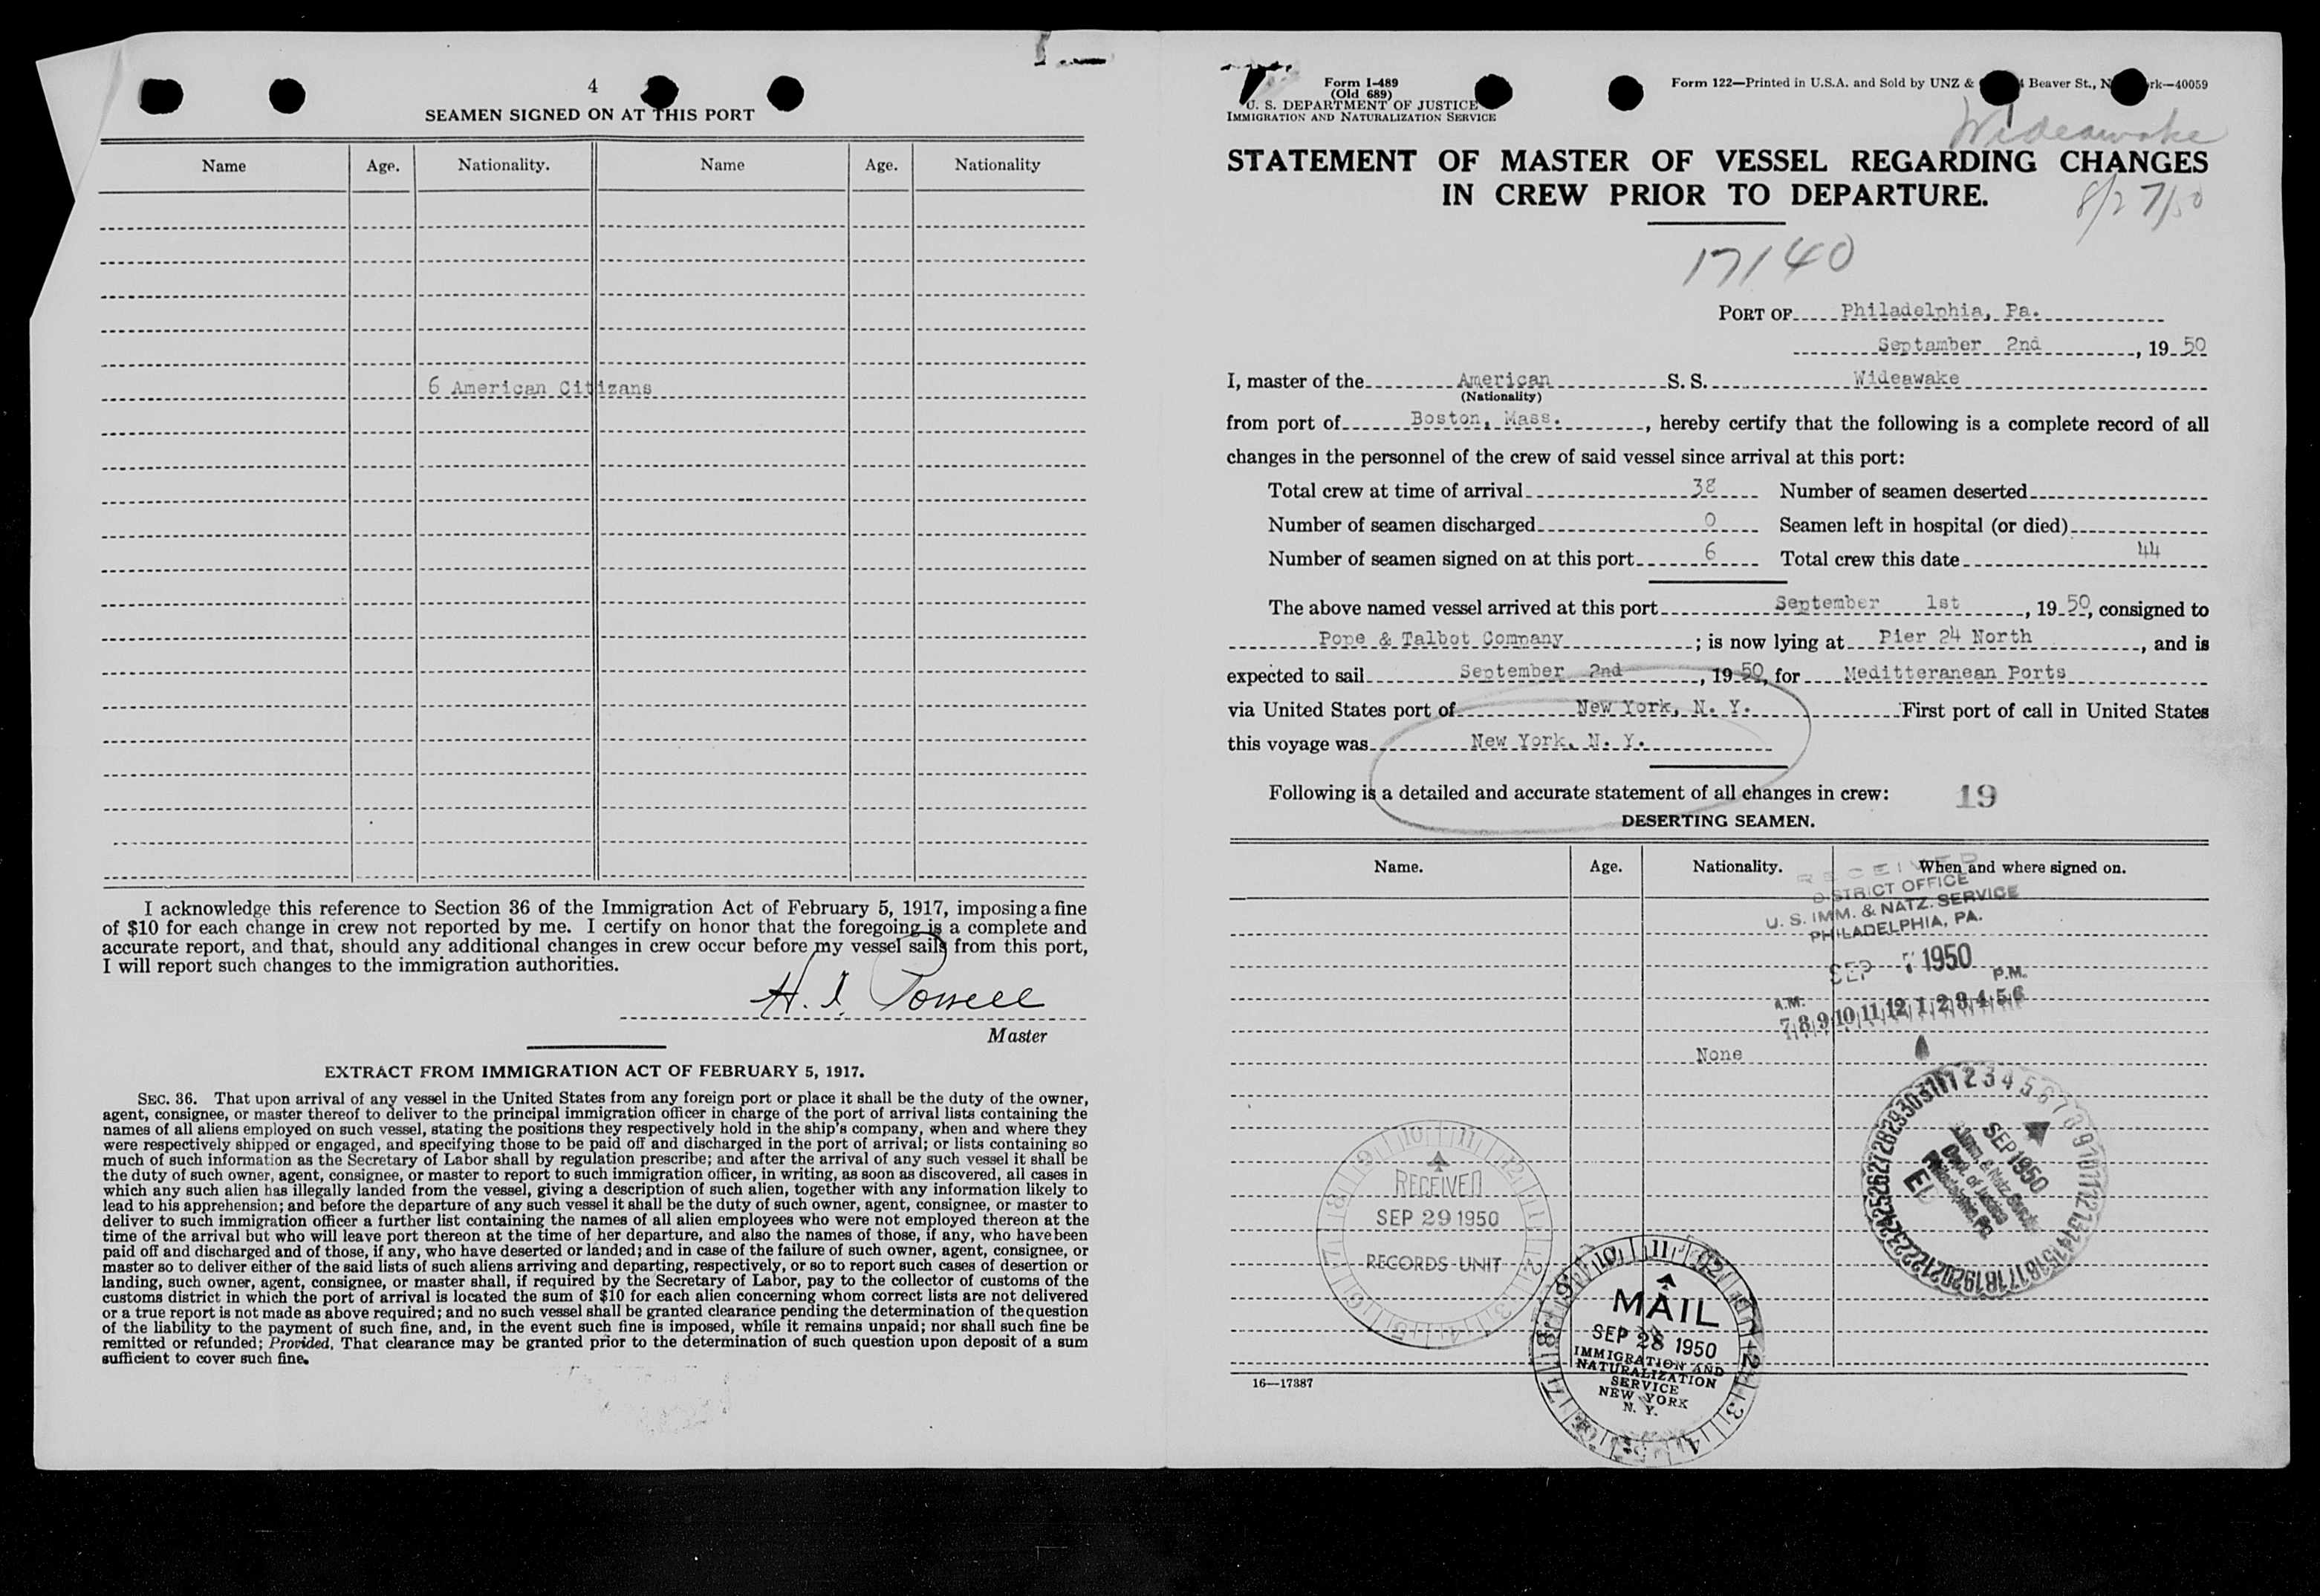 4
SEAMEN SIGNED ON AT THIS PORT
Name Age. Nationality. Name Age. Nationality
6 American Citizans
I acknowledge this reference to Section 36 of the Immigration Act of February 5, 1917, imposing a fine
of $10 for each change in crew not reported by me. I certify on honor that the foregoing is a complete and
accurate report, and that, should any additional changes in crew occur before my vessel sails from this port,
I will report such changes to the immigration authorities.
H. I. Powell
Master
EXTRACT FROM IMMIGRATION ACT OF FEBRUARY 5, 1917.
SEC. 36. That upon arrival of any vessel in the United States from any foreign port or place it shall be the duty of the owner,
agent, consignee, or master thereof to deliver to the principal immigration officer in charge of the port of arrival lists containing the
names of all aliens employed on such vessel, stating the positions they respectively hold in the ship's company, when and where they
were respectively shipped or engaged, and specifying those to be paid off and discharged in the port of arrival; or lists containing so
much of such information as the Secretary of Labor shall by regulation prescribe; and after the arrival of any such vessel it shall be
the duty of such owner, agent, consignee, or master to report to such immigration officer, in writing, as soon as discovered, all cases in
which any such alien has illegally landed from the vessel, giving a description of such alien, together with any information likely to
lead to his apprehension; and before the departure of any such vessel it shall be the duty of such owner, agent, consignee, or master to
deliver to such immigration officer a further list containing the names of all alien employees who were not employed thereon at the
time of the arrival but who will leave port thereon at the time of her departure, and also the names of those, if any, who have been
paid off and discharged and of those, if any, who have deserted or landed; and in case of the failure of such owner, agent, consignee, or
master so to deliver either of the said lists of such aliens arriving and departing, respectively, or so to report such cases of desertion or
landing, such owner, agent, consignee, or master shall, if required by the Secretary of Labor, pay to the collector of customs of the
customs district in which the port of arrival is located the sum of $10 for each alien concerning whom correct lists are not delivered
or a true report is not made as above required; and no such vessel shall be granted clearance pending the determination of the question
of the liability to the payment of such fine, and, in the event such fine is imposed, while it remains unpaid; nor shall such fine be
remitted or refunded; Provided, That clearance may be granted prior to the determination of such question upon deposit of a sum
sufficient to cover such fine.
Form I-489
(Old 689)
U. S. DEPARTMENT OF JUSTICE
IMMIGRATION AND NATURALIZATION SERVICE
Form 122—Printed in U.S.A. and Sold by UNZ & Beaver St., N rk—40059
Wideawake
STATEMENT OF MASTER OF VESSEL REGARDING CHANGES
IN CREW PRIOR TO DEPARTURE.
8/27/50
17140
PORT OF Philadelphia, Pa.
Septamber 2nd, 19 50
I, master of the American S. S. Wideawake
(Nationality)
from port of Boston, Mass., hereby certify that the following is a complete record of all
changes in the personnel of the crew of said vessel since arrival at this port:
Total crew at time of arrival 38 Number of seamen deserted
Number of seamen discharged 0 Seamen left in hospital (or died)
Number of seamen signed on at this port 6 Total crew this date 44
The above named vessel arrived at this port September 1st, 19 50, consigned to
Pope & Talbot Company; is now lying at Pier 24 North, and is
expected to sail September 2nd, 19 50, for Meditteranean Ports
via United States port of New York, N. Y. First port of call in United States
this voyage was New York, N. Y.
Following is a detailed and accurate statement of all changes in crew:
19
DESERTING SEAMEN.
Name. Age. Nationality. When and where signed on.
RECEIVED
DISTRICT OFFICE
U. S. IMM. & NATZ. SERVICE
PHILADELPHIA, PA.
SEP 7 1950
A.M. P.M.
7 8 9 10 11 12 1 2 3 4 5 6
None
SEP 1950
Imm. & Natz. Service
Dept. of Justice
Philadelphia, Pa.
RECEIVED
SEP 29 1950
RECORDS UNIT
MAIL
SEP 28 1950
IMMIGRATION AND
NATURALIZATION
SERVICE
NEW YORK
N. Y.
16—17387